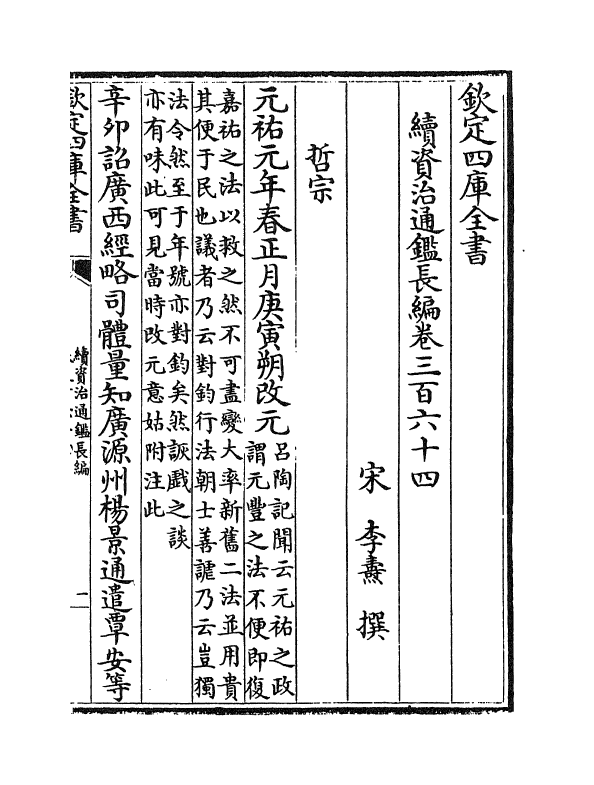 欽定四庫全書
續資治通鑑長編卷三百六十四
宋 李燾 撰
哲宗
元祐元年春正月庚寅朔改元
呂陶記聞云元祐之政
謂元豐之法不便即復
嘉祐之法以救之然不可盡變大率新舊二法並用貴
其便于民也議者乃云對鈞行法朝士善謔乃云豈獨
法令然至于年號亦對鈞矣然詼戲之談
亦有味此可見當時改元意姑附注此
辛卯詔廣西經略司體量知廣源州楊景通遣覃安等
欽定四庫全書
續資治通鑑長編
二